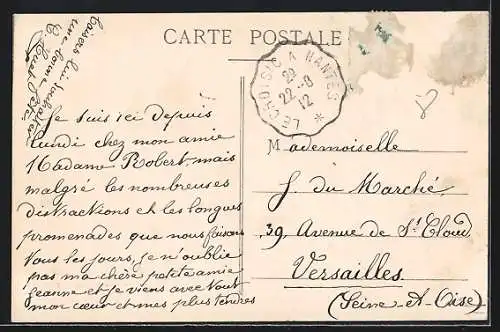 CARTE POSTALE
LE CROISIC A NANTES
22-8
12
Je suis ici depuis
lundi chez mon amie
Madame Robert, mais
malgré les nombreuses
distractions et les longues
promenades que nous faisons
tous les jours, je n'oublie
pas ma chère petite amie
Jeanne et je viens avec tout
mon cœur et mes plus tendres
baisers lui souhaiter
une bonne
Mademoiselle
J. du Marché
39, Avenue de St Cloud
Versailles
(Seine-et-Oise)